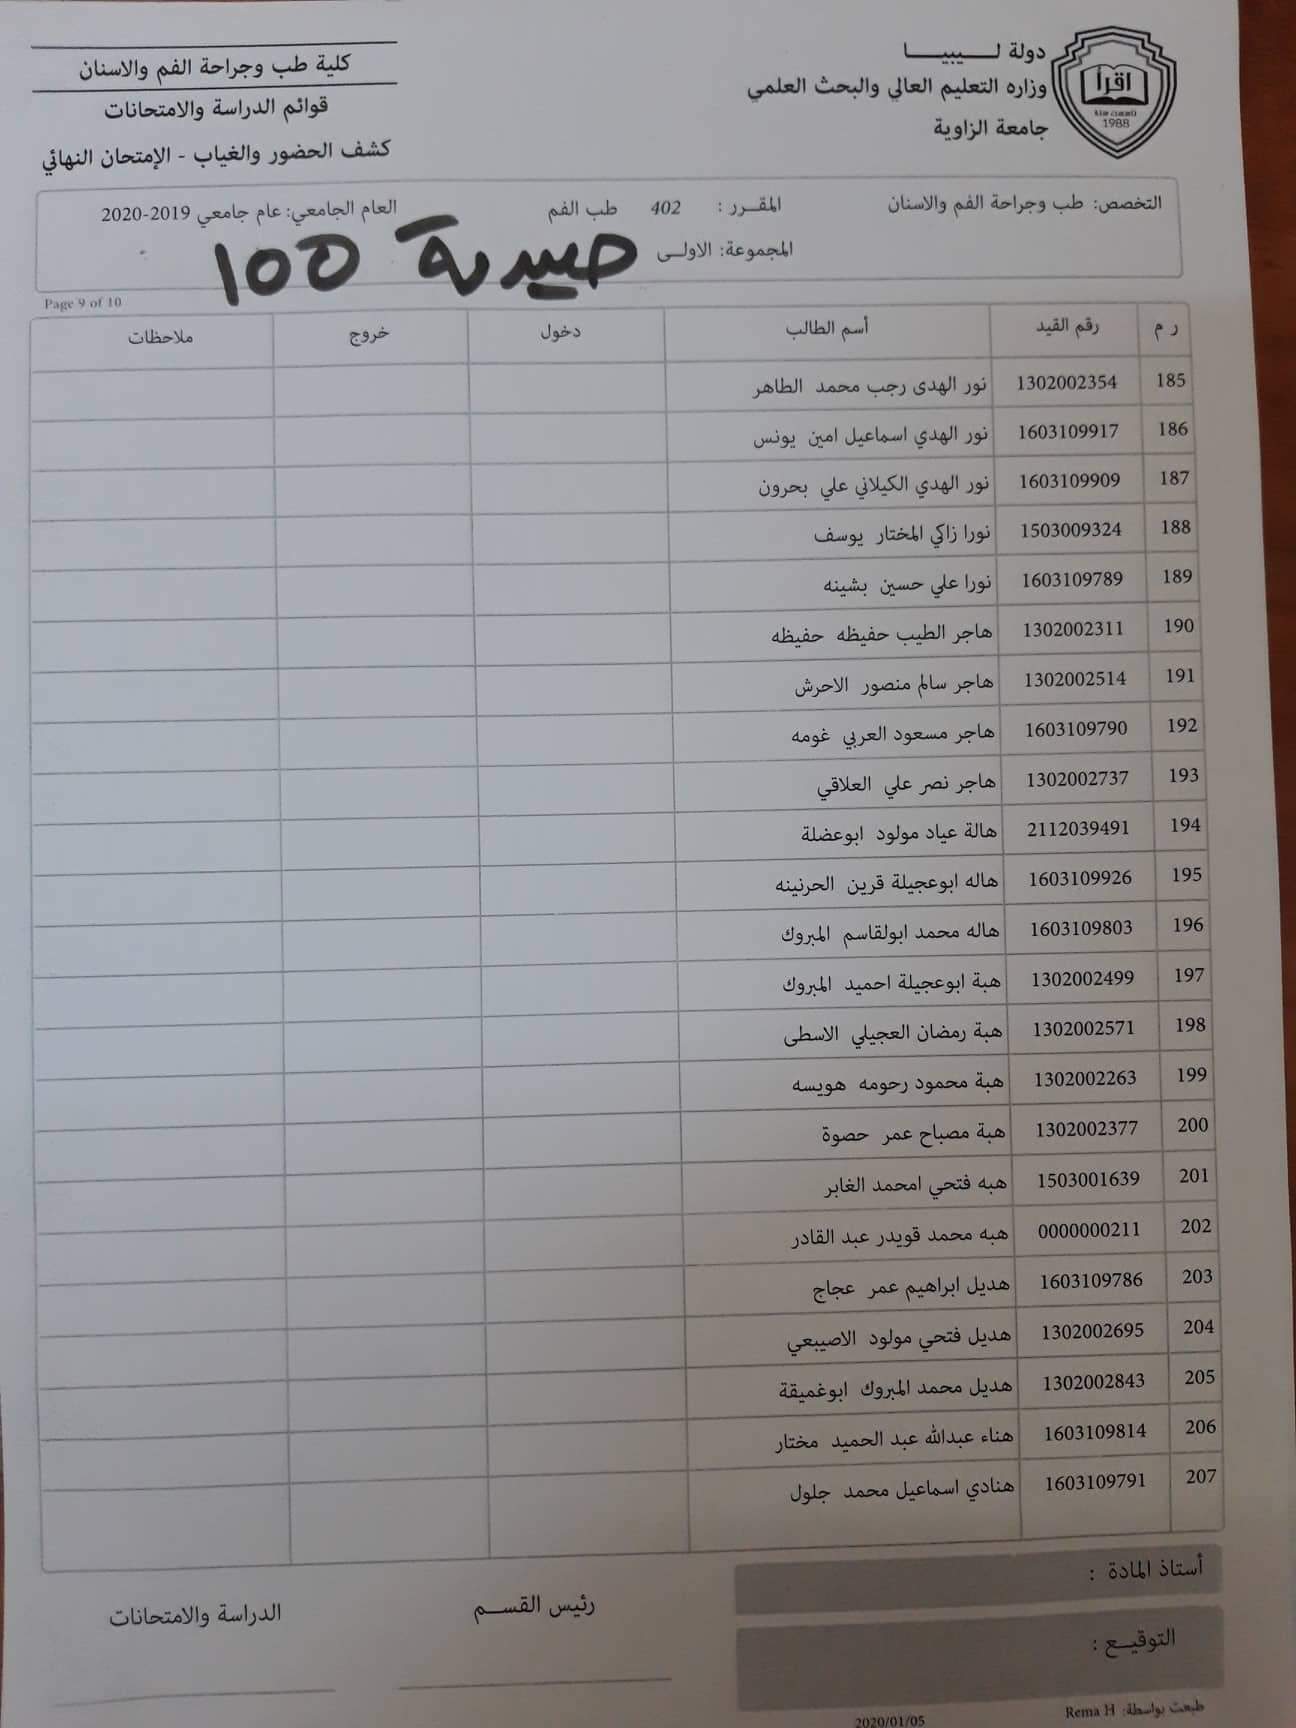 دولة لـــــيبيـــــا
وزاره التعليم العالي والبحث العلمي
جامعة الزاوية
اقرأ
1988
كلية طب وجراحة الفم والاسنان
قوائم الدراسة والامتحانات
كشف الحضور والغياب - الإمتحان النهائي
التخصص: طب وجراحة الفم والاسنان المقــرر : 402 طب الفم العام الجامعي: عام جامعي 2019-2020
المجموعة: الاولــى
صيدلة 100
Page 9 of 10
ر م رقم القيد أسم الطالب دخول خروج ملاحظات
185 1302002354 نور الهدى رجب محمد الطاهر
186 1603109917 نور الهدي اسماعيل امين يونس
187 1603109909 نور الهدي الكيلاني علي بحرون
188 1503009324 نورا زاكي المختار يوسف
189 1603109789 نورا علي حسين بشينه
190 1302002311 هاجر الطيب حفيظه حفيظه
191 1302002514 هاجر سالم منصور الاحرش
192 1603109790 هاجر مسعود العربي غومه
193 1302002737 هاجر نصر علي العلاقي
194 2112039491 هالة عياد مولود ابوعضلة
195 1603109926 هاله ابوعجيلة قرين الحرنينه
196 1603109803 هاله محمد ابولقاسم المبروك
197 1302002499 هبة ابوعجيلة احميد المبروك
198 1302002571 هبة رمضان العجيلي الاسطى
199 1302002263 هبة محمود رحومه هويسه
200 1302002377 هبة مصباح عمر حصوة
201 1503001639 هبه فتحي امحمد الغابر
202 0000000211 هبه محمد قويدر عبد القادر
203 1603109786 هديل ابراهيم عمر عجاج
204 1302002695 هديل فتحي مولود الاصيبعي
205 1302002843 هديل محمد المبروك ابوغميقة
206 1603109814 هناء عبدالله عبد الحميد مختار
207 1603109791 هنادي اسماعيل محمد جلول
أستاذ المادة :
التوقيــع :
رئيس القســم
الدراسة والامتحانات
طبعت بواسطة: Rema H
2020/01/05